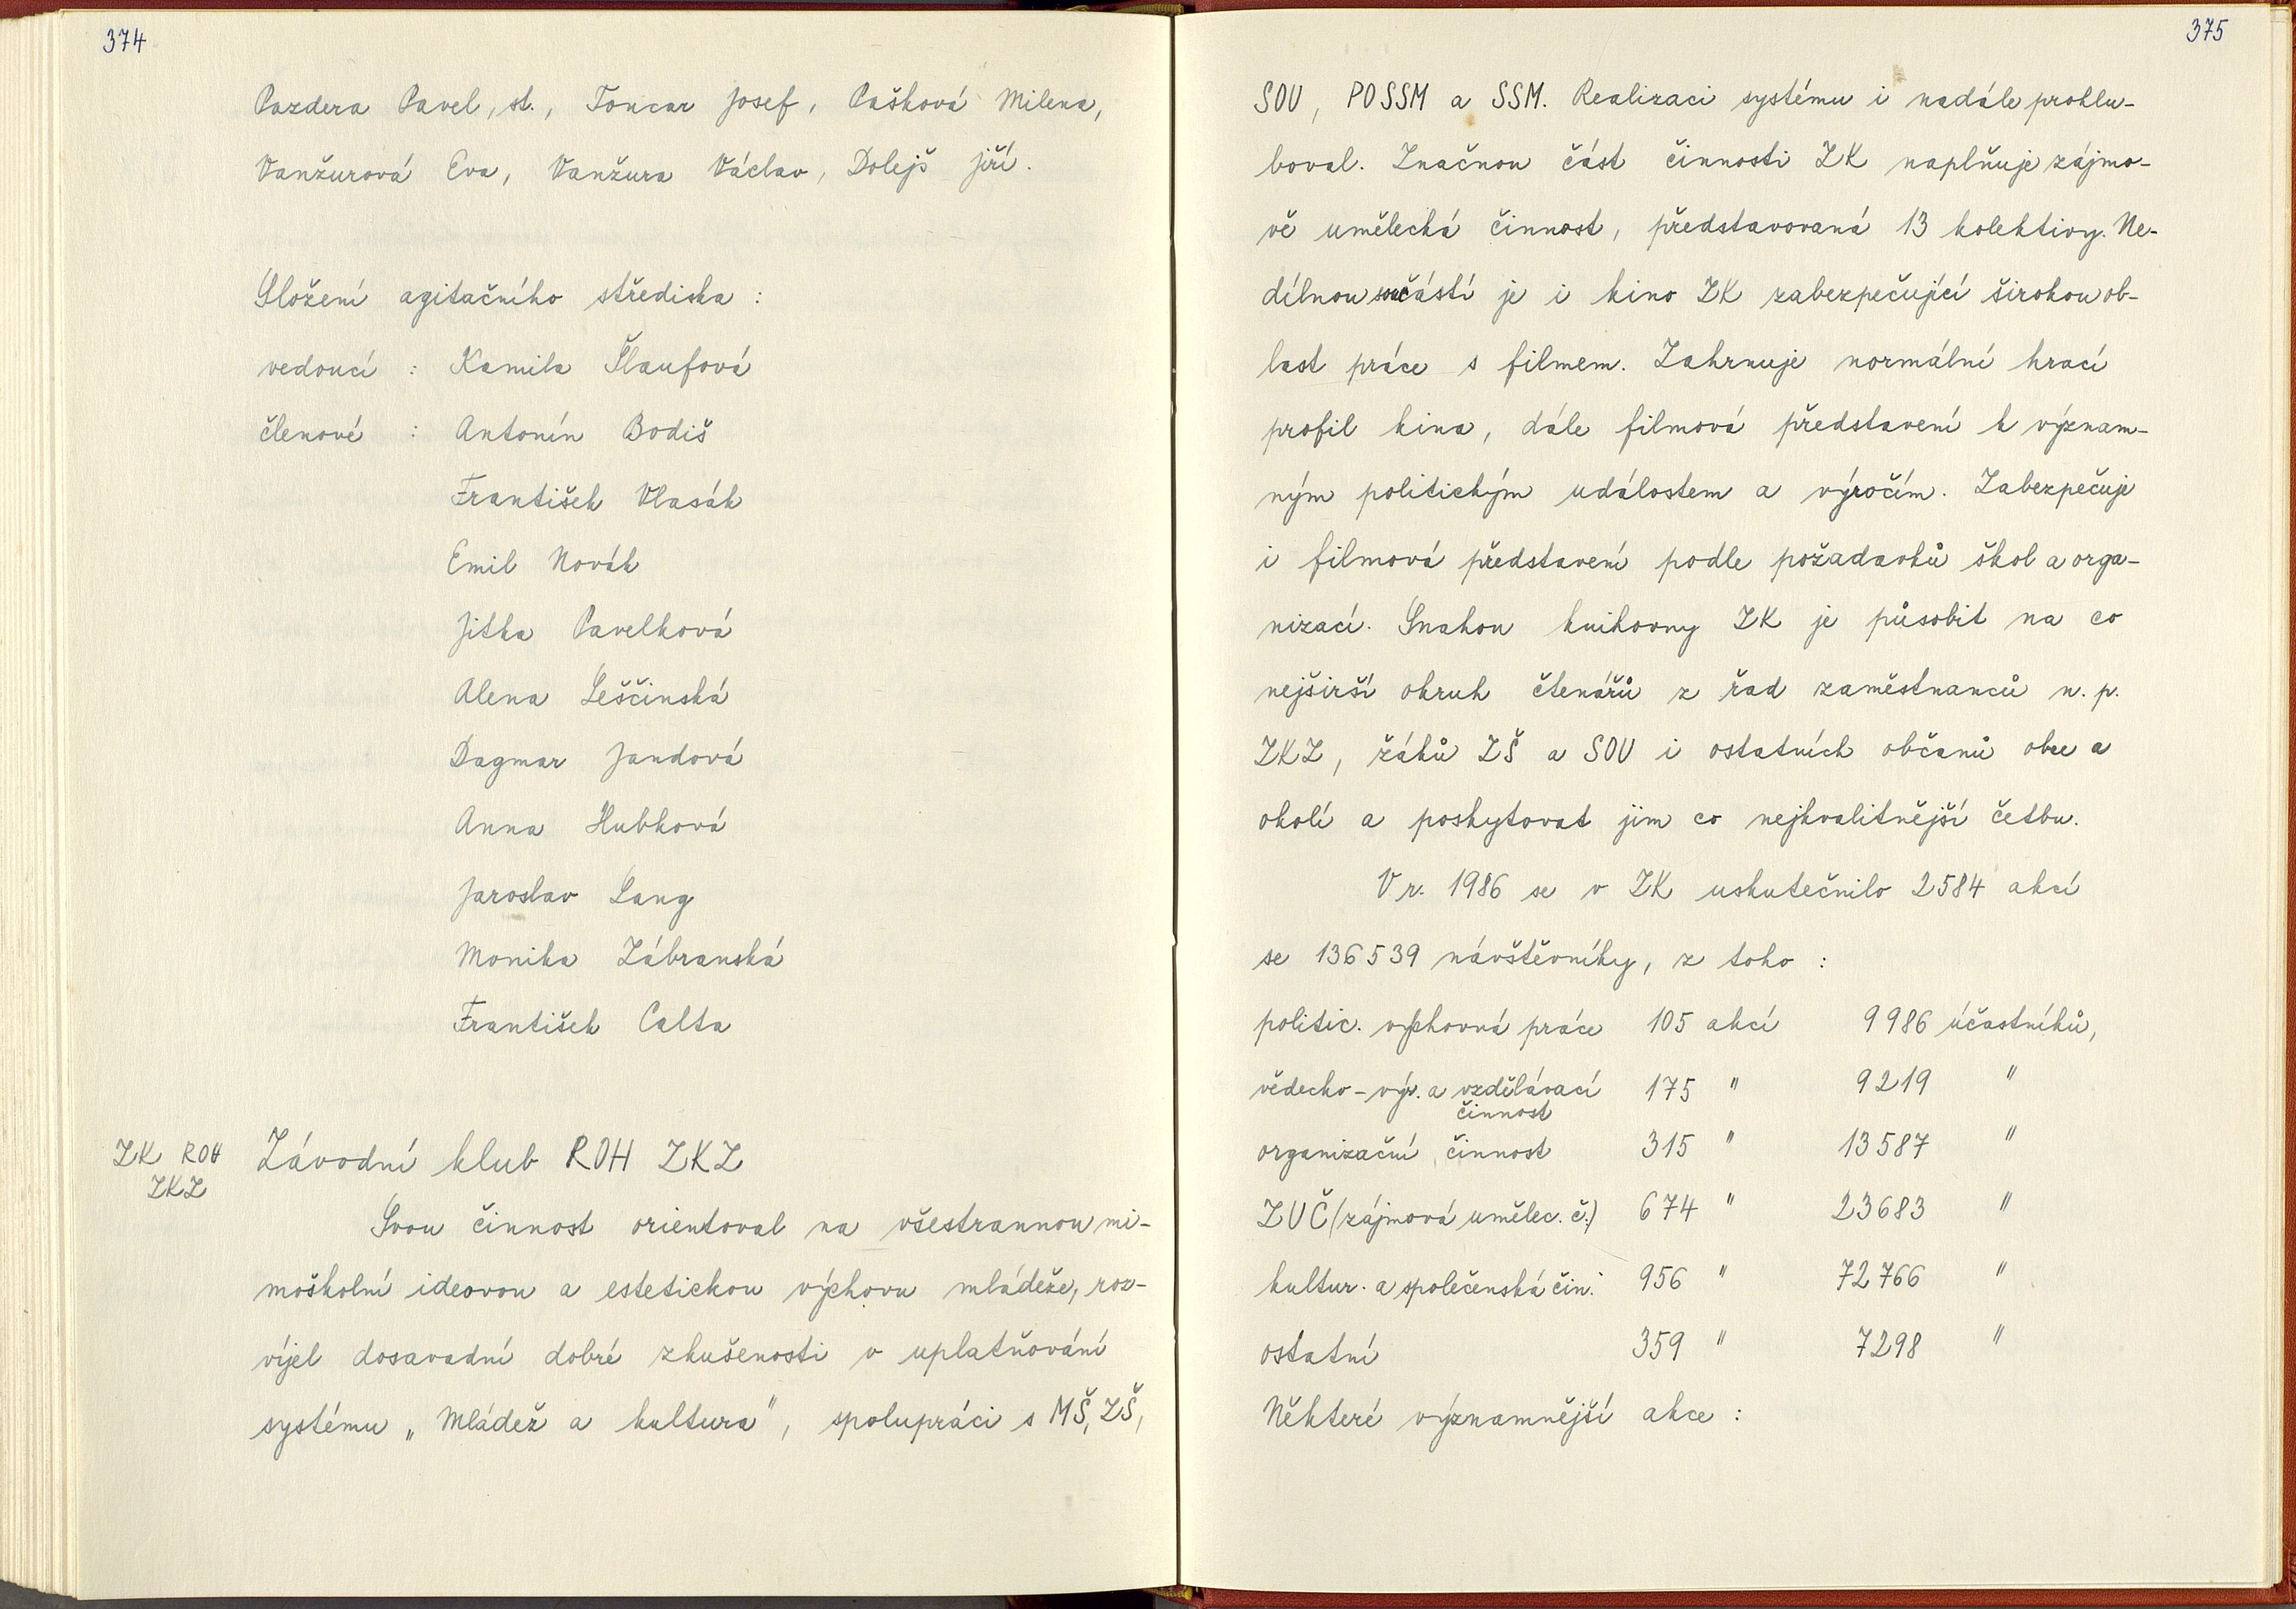 374
Pazdera Pavel, st., Toncar Josef, Pašková Milena,
Vanžurová Eva, Vanžura Václav, Dolejš Jiří.
Složení agitačního střediska :
vedoucí : Kamila Šlaufová
členové : Antonín Bodiš
František Vlasák
Emil Novák
Jitka Pavelková
Alena Leščinská
Dagmar Jandová
Anna Hubková
Jaroslav Lang
Monika Zábranská
František Calta
ZK ROH
ZKZ
Závodní klub ROH ZKZ
Svou činnost orientoval na všestrannou mi-
moškolní ideovou a estetickou výchovu mládeže, roz-
víjel dosavadní dobré zkušenosti v uplatňování
systému „Mládež a kultura", spolupráci s MŠ, ZŠ,
375
SOU, POSSM a SSM. Realizaci systému i nadále prohlu-
boval. Značnou část činnosti ZK naplňuje zájmo-
vě umělecká činnost, představovaná 13 kolektivy. Ne-
dílnou součástí je i kino ZK zabezpečující širokou ob-
last práce s filmem. Zahrnuje normální hrací
profil kina, dále filmová představení k význam-
ným politickým událostem a výročím. Zabezpečuje
i filmová představení podle požadavků škol a orga-
nizací. Snahou knihovny ZK je působit na co
nejširší okruh čtenářů z řad zaměstnanců n. p.
ZKZ, žáků ZŠ a SOU i ostatních občanů obce a
okolí a poskytovat jim co nejkvalitnější četbu.
V r. 1986 se v ZK uskutečnilo 2584 akcí
se 136539 návštěvníky, z toho :
politic. výchovná práce 105 akcí 9986 účastníků,
vědecko-výr. a vzdělávací 175 " 9219 "
činnost
organizační činnost 315 " 13587 "
ZUČ (zájmová umělec. č.) 674 " 23683 "
kultur. a společenská čin. 956 " 72766 "
ostatní 359 " 7298 "
Některé významnější akce :